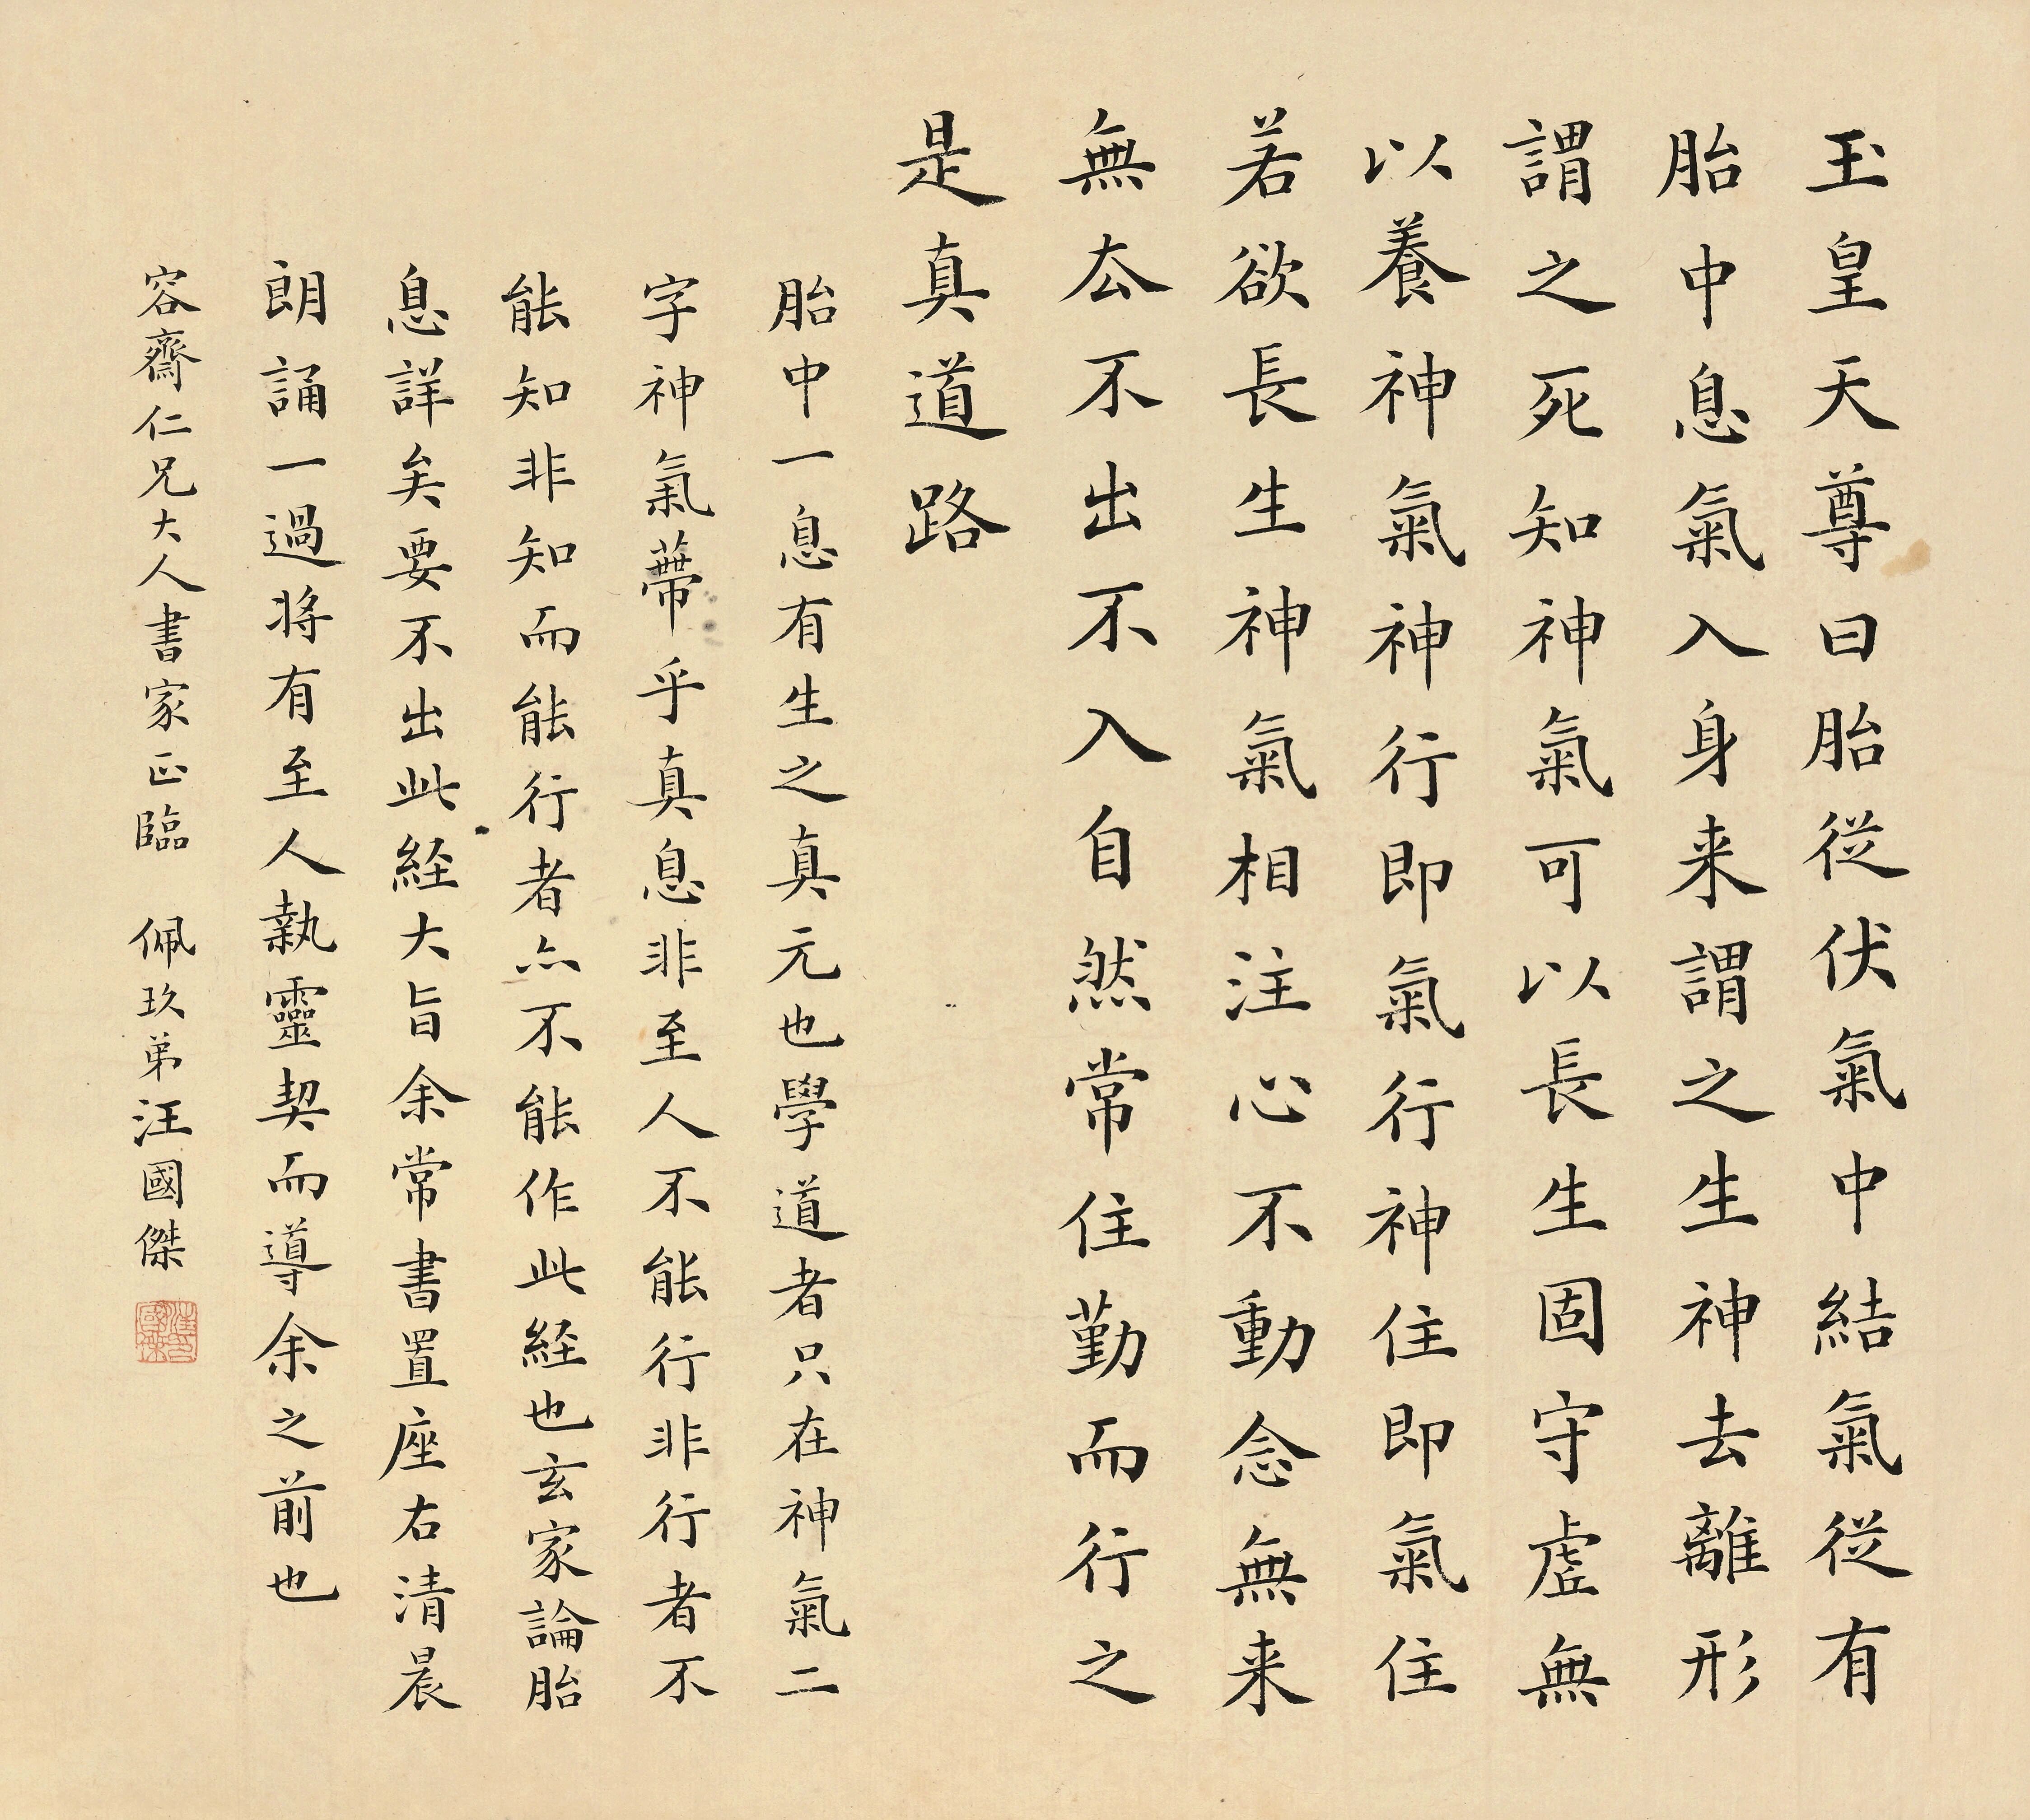 玉皇天尊曰胎從伏氣中結氣從有
胎中息氣入身来謂之生神去離形
謂之死知神氣可以長生固守虛無
以養神氣神行即氣行神住即氣住
若欲長生神氣相注心不動念無来
無厺不出不入自然常住勤而行之
是真道路
胎中一息有生之真元也學道者只在神氣二
字神氣蔕乎真息非至人不能行非行者不
能知非知而能行者亦不能作此経也玄家論胎
息詳矣要不出此経大旨余常書置座右清晨
朗誦一過将有至人執靈契而導余之前也
容齋仁兄大人書家正臨 佩玖弟汪國傑
汪國傑印